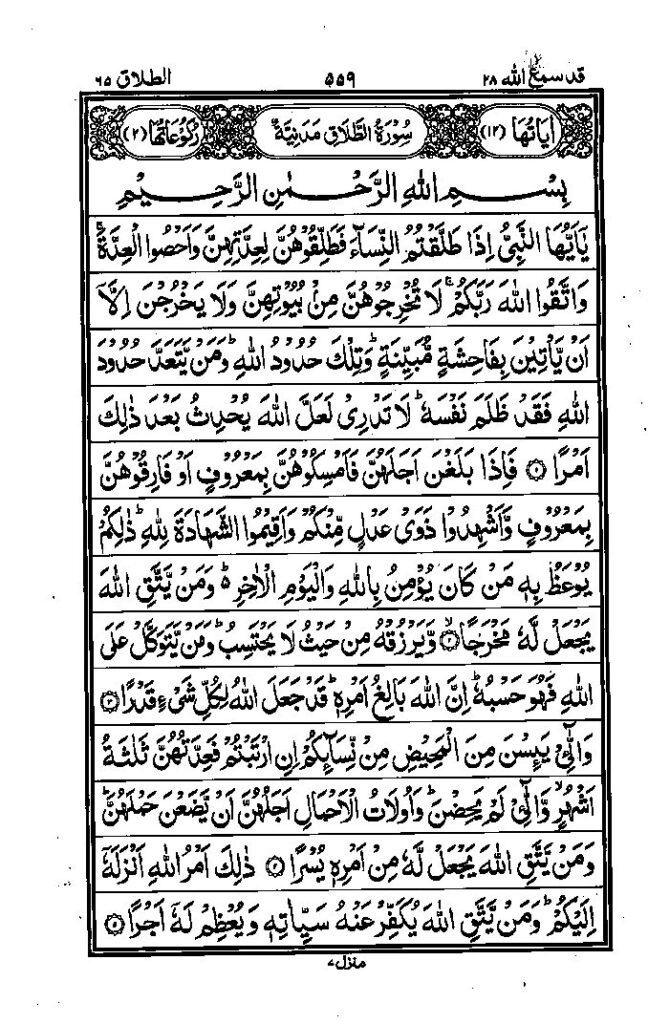 قد سمع الله ٢٨ ٥٥٩ الطلاق ٦٥
اٰيَاتُهَا (١٢) سُوْرَةُ الطَّلَاقِ مَدَنِيَّةٌ رُكُوْعَاتُهَا (٢)
بِسْمِ اللهِ الرَّحْمٰنِ الرَّحِيْمِ
يٰۤاَيُّهَا النَّبِيُّ اِذَا طَلَّقْتُمُ النِّسَآءَ فَطَلِّقُوْهُنَّ لِعِدَّتِهِنَّ وَاَحْصُوا الْعِدَّةَ ۚ
وَاتَّقُوا اللهَ رَبَّكُمْ ۚ لَا تُخْرِجُوْهُنَّ مِنْۢ بُيُوْتِهِنَّ وَلَا يَخْرُجْنَ اِلَّاۤ
اَنْ يَّاْتِيْنَ بِفَاحِشَةٍ مُّبَيِّنَةٍ ؕ وَتِلْكَ حُدُوْدُ اللهِ ؕ وَمَنْ يَّتَعَدَّ حُدُوْدَ
اللهِ فَقَدْ ظَلَمَ نَفْسَهٗ ؕ لَا تَدْرِىْ لَعَلَّ اللهَ يُحْدِثُ بَعْدَ ذٰلِكَ
اَمْرًا ۝١ فَاِذَا بَلَغْنَ اَجَلَهُنَّ فَاَمْسِكُوْهُنَّ بِمَعْرُوْفٍ اَوْ فَارِقُوْهُنَّ
بِمَعْرُوْفٍ وَّاَشْهِدُوْا ذَوَىْ عَدْلٍ مِّنْكُمْ وَاَقِيْمُوا الشَّهَادَةَ لِلّٰهِ ؕ ذٰلِكُمْ
يُوْعَظُ بِهٖ مَنْ كَانَ يُؤْمِنُ بِاللهِ وَالْيَوْمِ الْاٰخِرِ ؕ۬ وَمَنْ يَّتَّقِ اللهَ
يَجْعَلْ لَّهٗ مَخْرَجًا ۝٢ۙ وَّيَرْزُقْهُ مِنْ حَيْثُ لَا يَحْتَسِبُ ؕ وَمَنْ يَّتَوَكَّلْ عَلَى
اللهِ فَهُوَ حَسْبُهٗ ؕ اِنَّ اللهَ بَالِغُ اَمْرِهٖ ؕ قَدْ جَعَلَ اللهُ لِكُلِّ شَىْءٍ قَدْرًا ۝٣
وَالّٰٓـِٔىْ يَئِسْنَ مِنَ الْمَحِيْضِ مِنْ نِّسَآئِكُمْ اِنِ ارْتَبْتُمْ فَعِدَّتُهُنَّ ثَلٰثَةُ
اَشْهُرٍ ۙ وَّالّٰٓـِٔىْ لَمْ يَحِضْنَ ؕ وَاُولَاتُ الْاَحْمَالِ اَجَلُهُنَّ اَنْ يَّضَعْنَ حَمْلَهُنَّ ؕ
وَمَنْ يَّتَّقِ اللهَ يَجْعَلْ لَّهٗ مِنْ اَمْرِهٖ يُسْرًا ۝٤ ذٰلِكَ اَمْرُ اللهِ اَنْزَلَهٗۤ
اِلَيْكُمْ ؕ وَمَنْ يَّتَّقِ اللهَ يُكَفِّرْ عَنْهُ سَيِّاٰتِهٖ وَيُعْظِمْ لَهٗۤ اَجْرًا ۝٥
منزل ٧